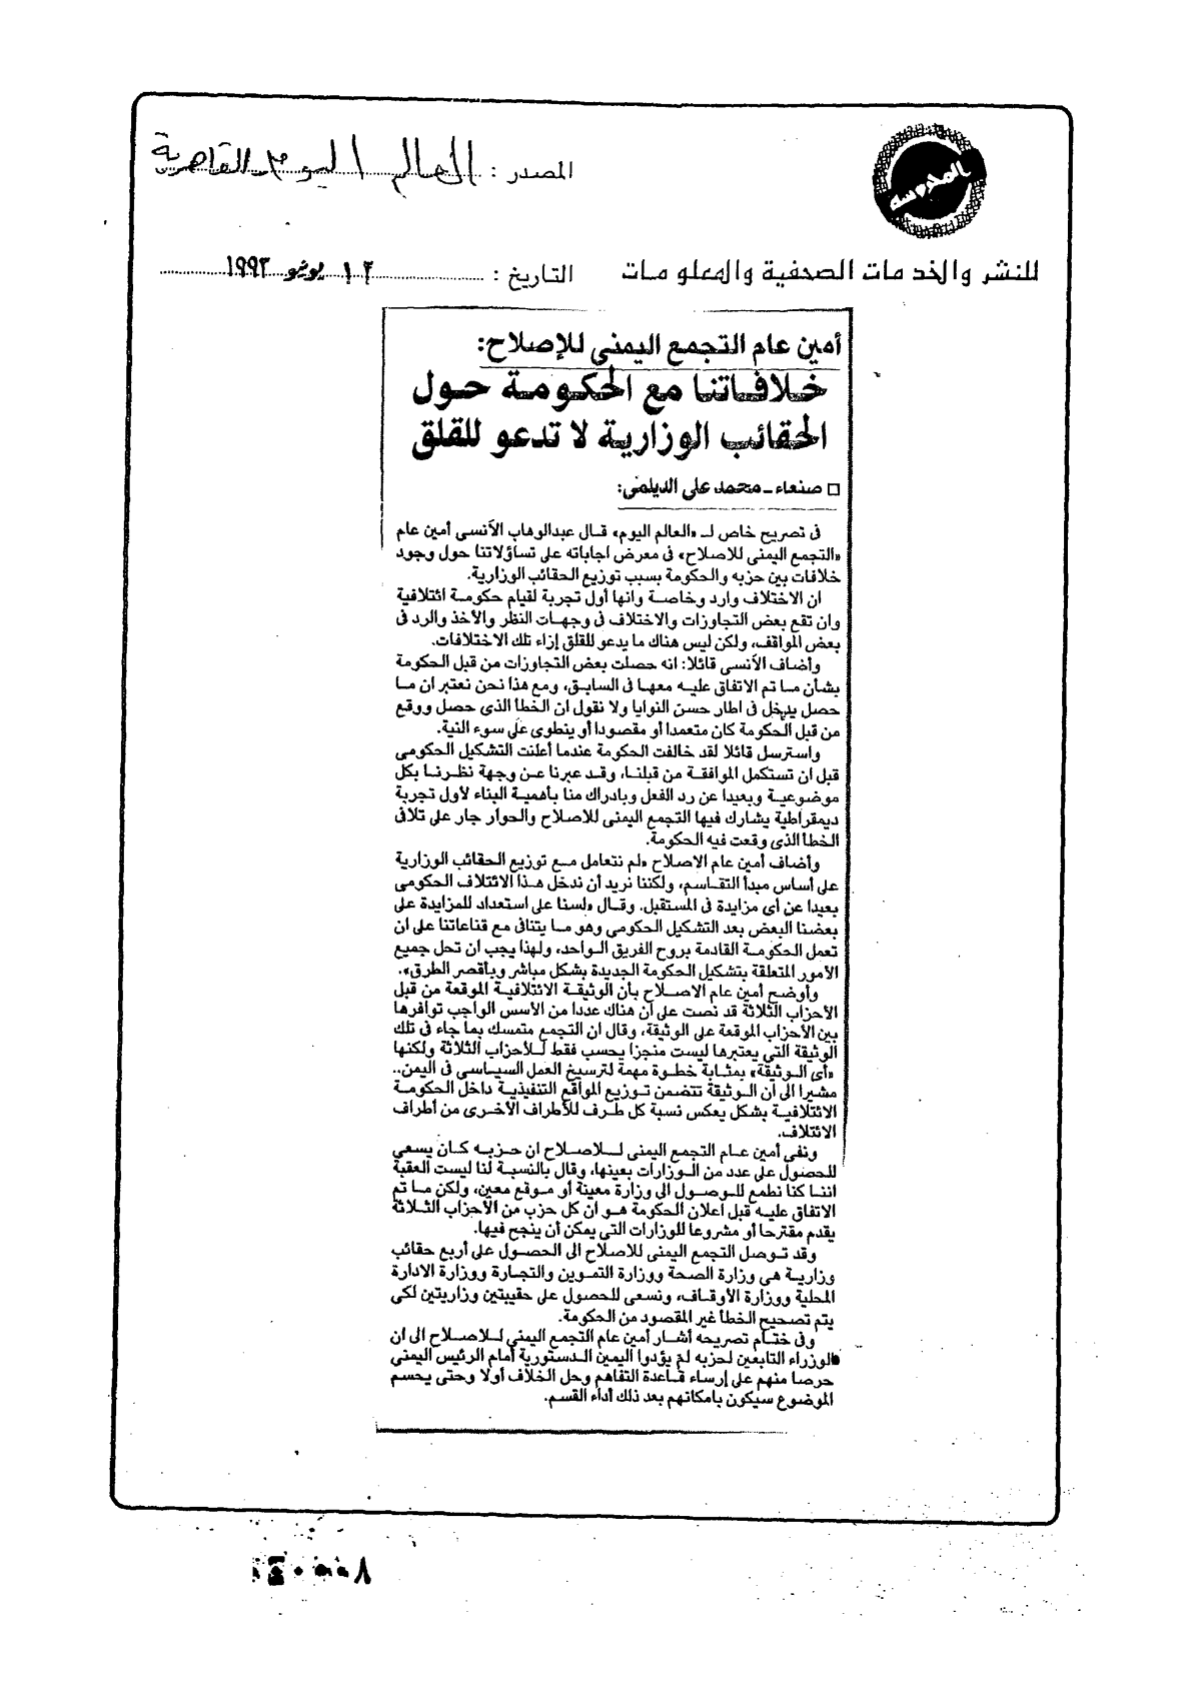 المصدر : العالم اليوم القاهرية
المحروسة
للنشر والخدمات الصحفية والمعلومات
التاريخ : ١٢ يونيو ١٩٩٣
أمين عام التجمع اليمنى للإصلاح:
خلافاتنا مع الحكومة حول
الحقائب الوزارية لا تدعو للقلق
□ صنعاء ـ محمد على الديلمى:
فى تصريح خاص لـ «العالم اليوم» قال عبدالوهاب الآنسى أمين عام
«التجمع اليمنى للاصلاح» فى معرض اجاباته على تساؤلاتنا حول وجود
خلافات بين حزبه والحكومة بسبب توزيع الحقائب الوزارية.
ان الاختلاف وارد وخاصة وانها أول تجربة لقيام حكومة ائتلافية
وان تقع بعض التجاوزات والاختلاف فى وجهات النظر والأخذ والرد فى
بعض المواقف، ولكن ليس هناك ما يدعو للقلق إزاء تلك الاختلافات.
وأضاف الآنسى قائلا: انه حصلت بعض التجاوزات من قبل الحكومة
بشأن ما تم الاتفاق عليه معها فى السابق، ومع هذا نحن نعتبر ان ما
حصل يدخل فى اطار حسن النوايا ولا نقول ان الخطأ الذى حصل ووقع
من قبل الحكومة كان متعمدا أو مقصودا أو ينطوى على سوء النية.
واسترسل قائلا لقد خالفت الحكومة عندما أعلنت التشكيل الحكومى
قبل ان تستكمل الموافقة من قبلنا، وقد عبرنا عن وجهة نظرنا بكل
موضوعية وبعيدا عن رد الفعل وبادراك منا بأهمية البناء لأول تجربة
ديمقراطية يشارك فيها التجمع اليمنى للاصلاح والحوار جار على تلافى
الخطأ الذى وقعت فيه الحكومة.
وأضاف أمين عام الاصلاح «لم نتعامل مع توزيع الحقائب الوزارية
على أساس مبدأ التقاسم، ولكننا نريد أن ندخل هذا الائتلاف الحكومى
بعيدا عن أى مزايدة فى المستقبل. وقال «لسنا على استعداد للمزايدة على
بعضنا البعض بعد التشكيل الحكومى وهو ما يتنافى مع قناعاتنا على ان
تعمل الحكومة القادمة بروح الفريق الواحد، ولهذا يجب ان تحل جميع
الأمور المتعلقة بتشكيل الحكومة الجديدة بشكل مباشر وبأقصر الطرق».
وأوضح أمين عام الاصلاح بأن الوثيقة الائتلافية الموقعة من قبل
الأحزاب الثلاثة قد نصت على ان هناك عددا من الأسس الواجب توافرها
بين الأحزاب الموقعة على الوثيقة، وقال ان التجمع متمسك بما جاء فى تلك
الوثيقة التي يعتبرها ليست منجزا يحسب فقط للأحزاب الثلاثة ولكنها
«أى الوثيقة» بمثابة خطوة مهمة لترسيخ العمل السياسى فى اليمن..
مشيرا الى ان الوثيقة تتضمن توزيع المواقع التنفيذية داخل الحكومة
الائتلافية بشكل يعكس نسبة كل طرف للأطراف الأخرى من أطراف
الائتلاف.
ونفى أمين عام التجمع اليمنى للاصلاح ان حزبه كان يسعى
للحصول على عدد من الوزارات بعينها، وقال بالنسبة لنا ليست العقبة
اننا كنا نطمع للوصول الى وزارة معينة أو موقع معين، ولكن ما تم
الاتفاق عليه قبل اعلان الحكومة هو ان كل حزب من الأحزاب الثلاثة
يقدم مقترحا أو مشروعا للوزارات التى يمكن أن ينجح فيها.
وقد توصل التجمع اليمنى للاصلاح الى الحصول على أربع حقائب
وزارية هى وزارة الصحة ووزارة التموين والتجارة ووزارة الادارة
المحلية ووزارة الأوقاف، ونسعى للحصول على حقيبتين وزاريتين لكى
يتم تصحيح الخطأ غير المقصود من الحكومة.
وفى ختام تصريحه أشار أمين عام التجمع اليمنى للاصلاح الى ان
الوزراء التابعين لحزبه لم يؤدوا اليمين الدستورية أمام الرئيس اليمني
حرصا منهم على إرساء قاعدة التفاهم وحل الخلاف أولا وحتى يحسم
الموضوع سيكون بامكانهم بعد ذلك أداء القسم.